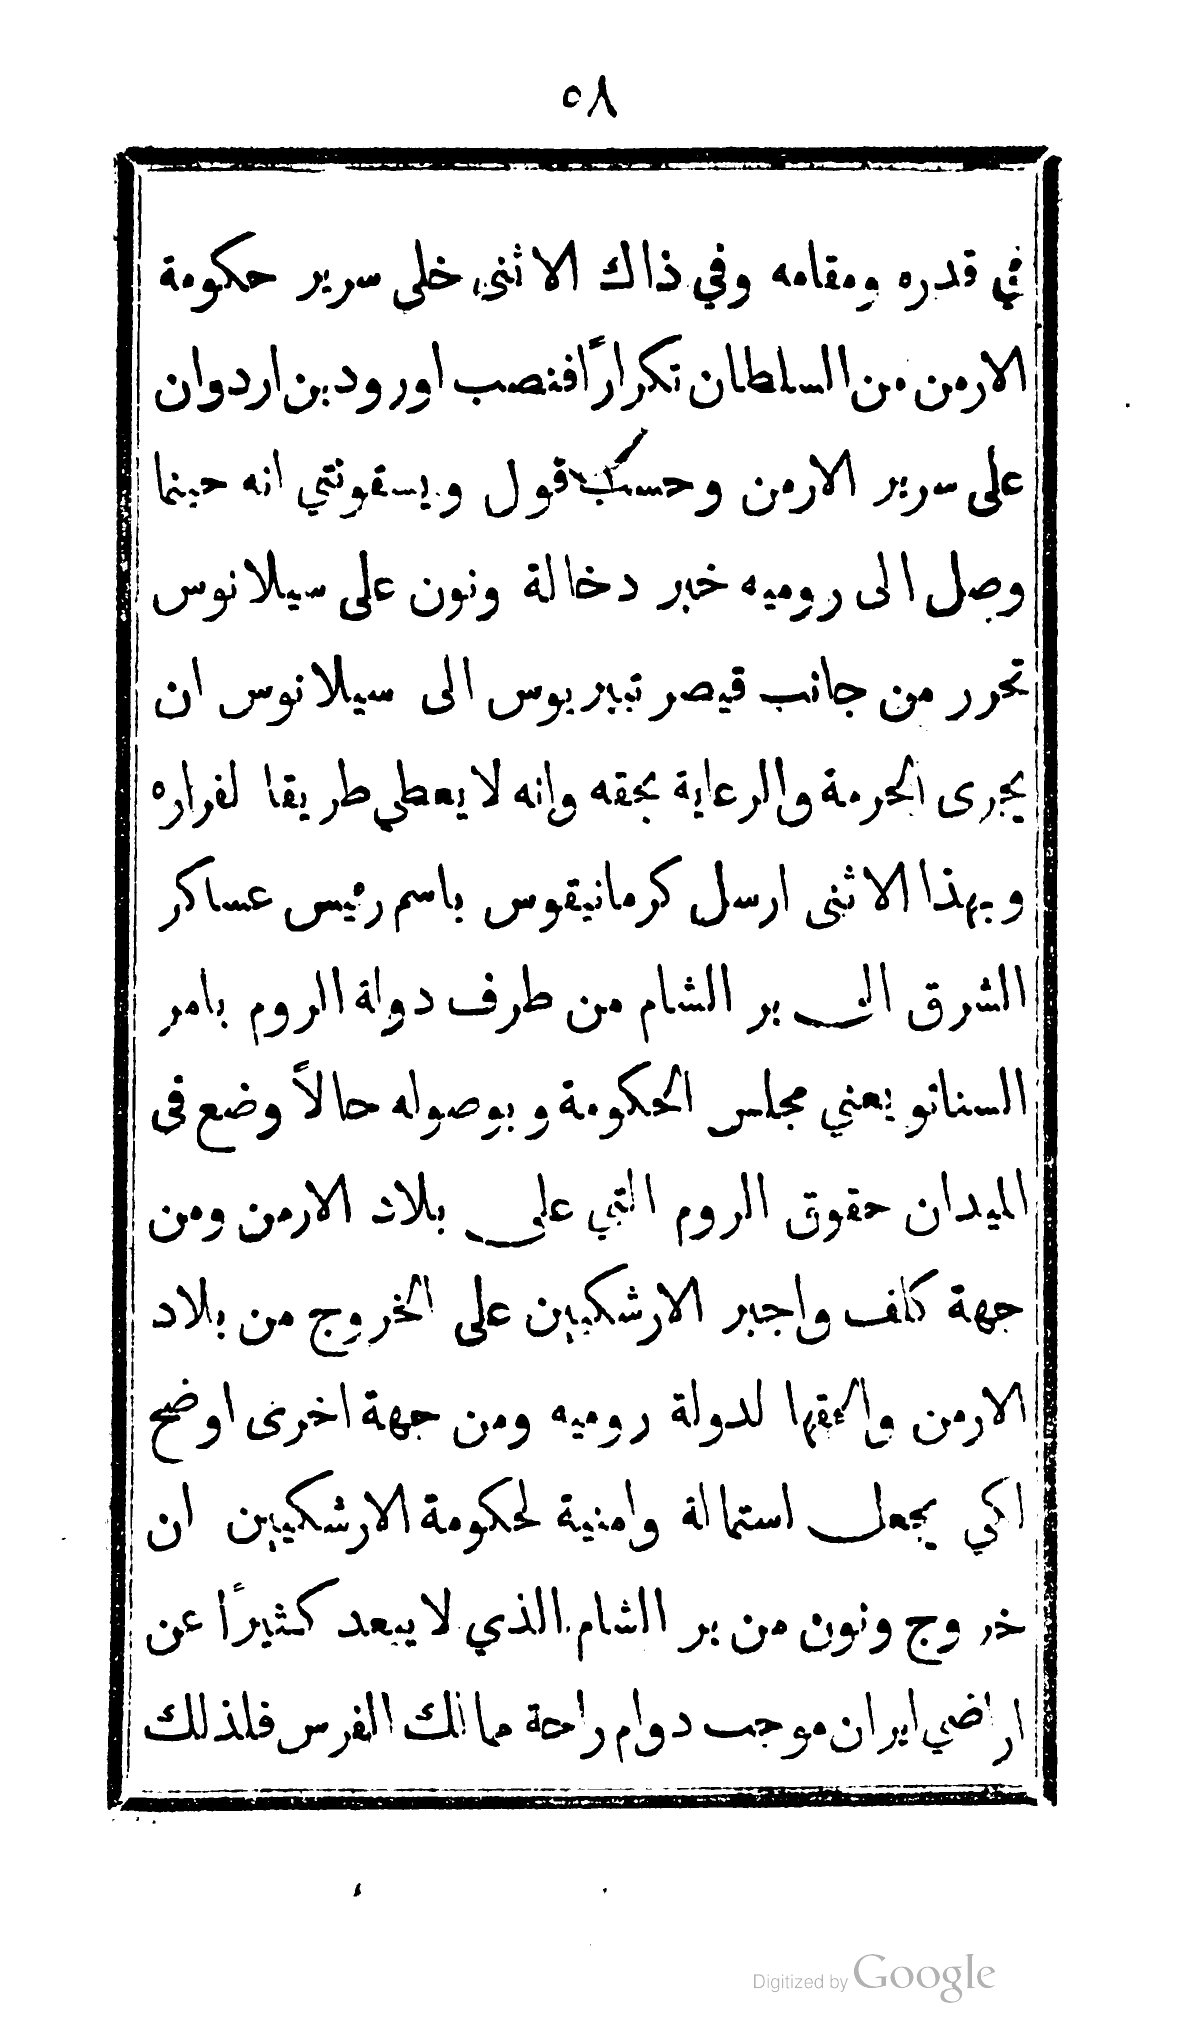 ٥٨
في قدره ومقامه وفي ذاك الاثنى خلى سرير حكومة
الارمن من السلطان تكراراً فنصب اورودين اردوان
على سرير الارمن وحسب قول ويسقونتي انه حينما
وصل الى روميه خبر دخالة ونون على سيلانوس
تحرر من جانب قيصر تيبريوس الى سيلانوس ان
يجرى الحرمة والرعاية بحقه وانه لا يعطي طريقا لفراره
وبهذا الاثنى ارسل كرمانيقوس باسم رئيس عساكر
الشرق الى بر الشام من طرف دولة الروم بامر
السناتو يعني مجلس الحكومة وبوصوله حالاً وضع في
الميدان حقوق الروم التي على بلاد الارمن ومن
جهة كلف واجبر الارشكيين على الخروج من بلاد
الارمن والحقها لدولة روميه ومن جهة اخرى اوضح
لكي يجعل استمالة وامنية لحكومة الارشكيين ان
خروج ونون من بر الشام الذي لا يبعد كثيراً عن
اراضي ايران موجب دوام راحة ممالك الفرس فلذلك
Digitized by Google